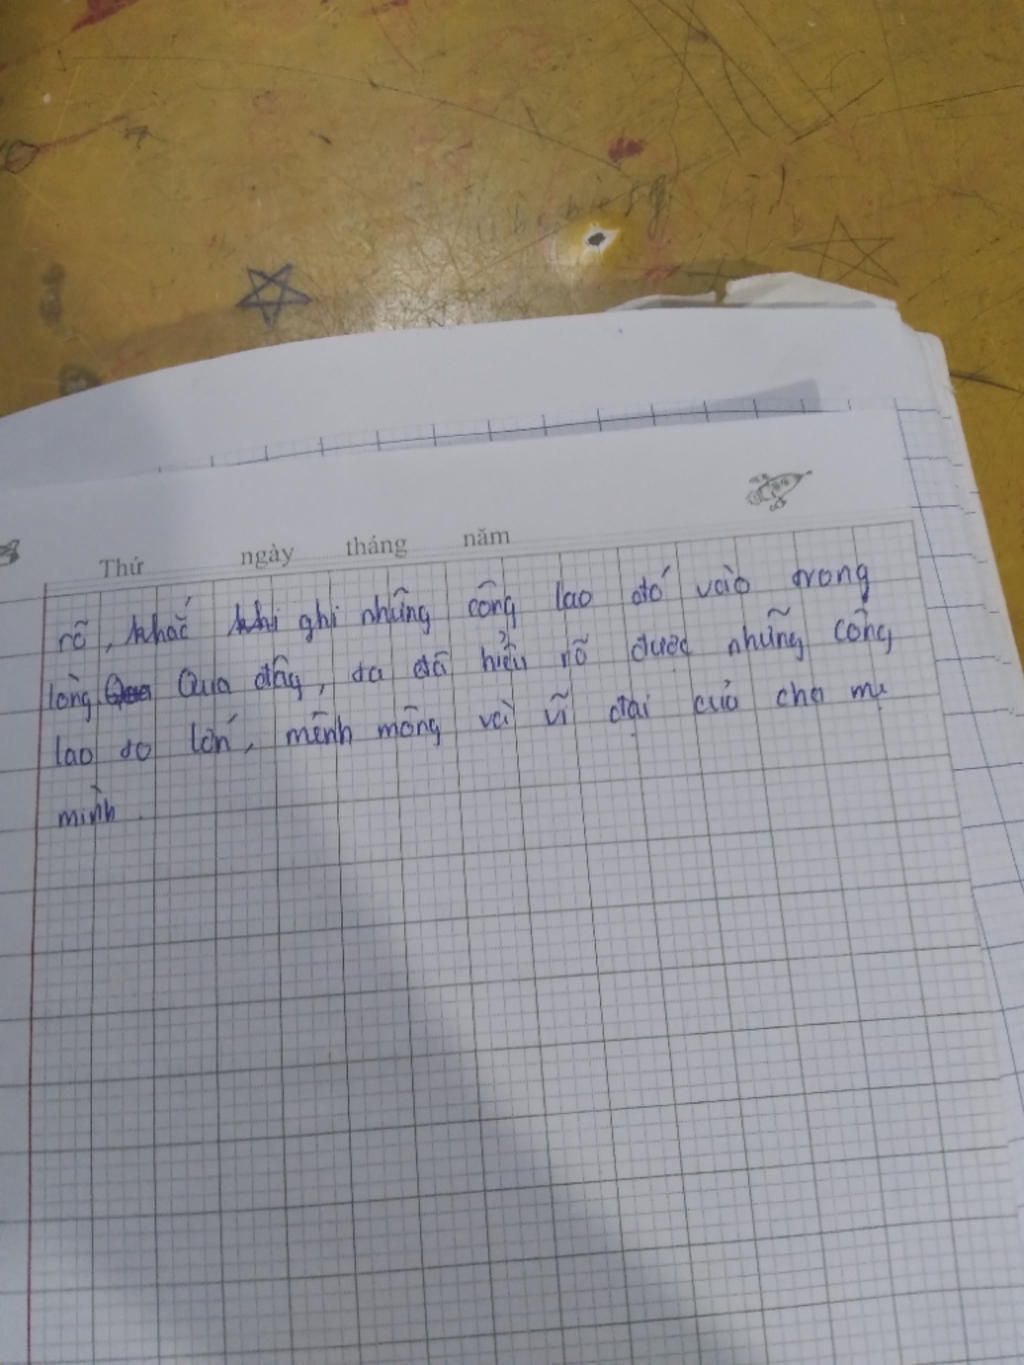 Thứ ngày tháng năm
rõ, khắc khi ghi những công lao đó vào trong
lòng. Qua đây, ta đã hiểu rõ được những công
lao to lớn, mênh mông và vĩ đại của cha mẹ
mình.